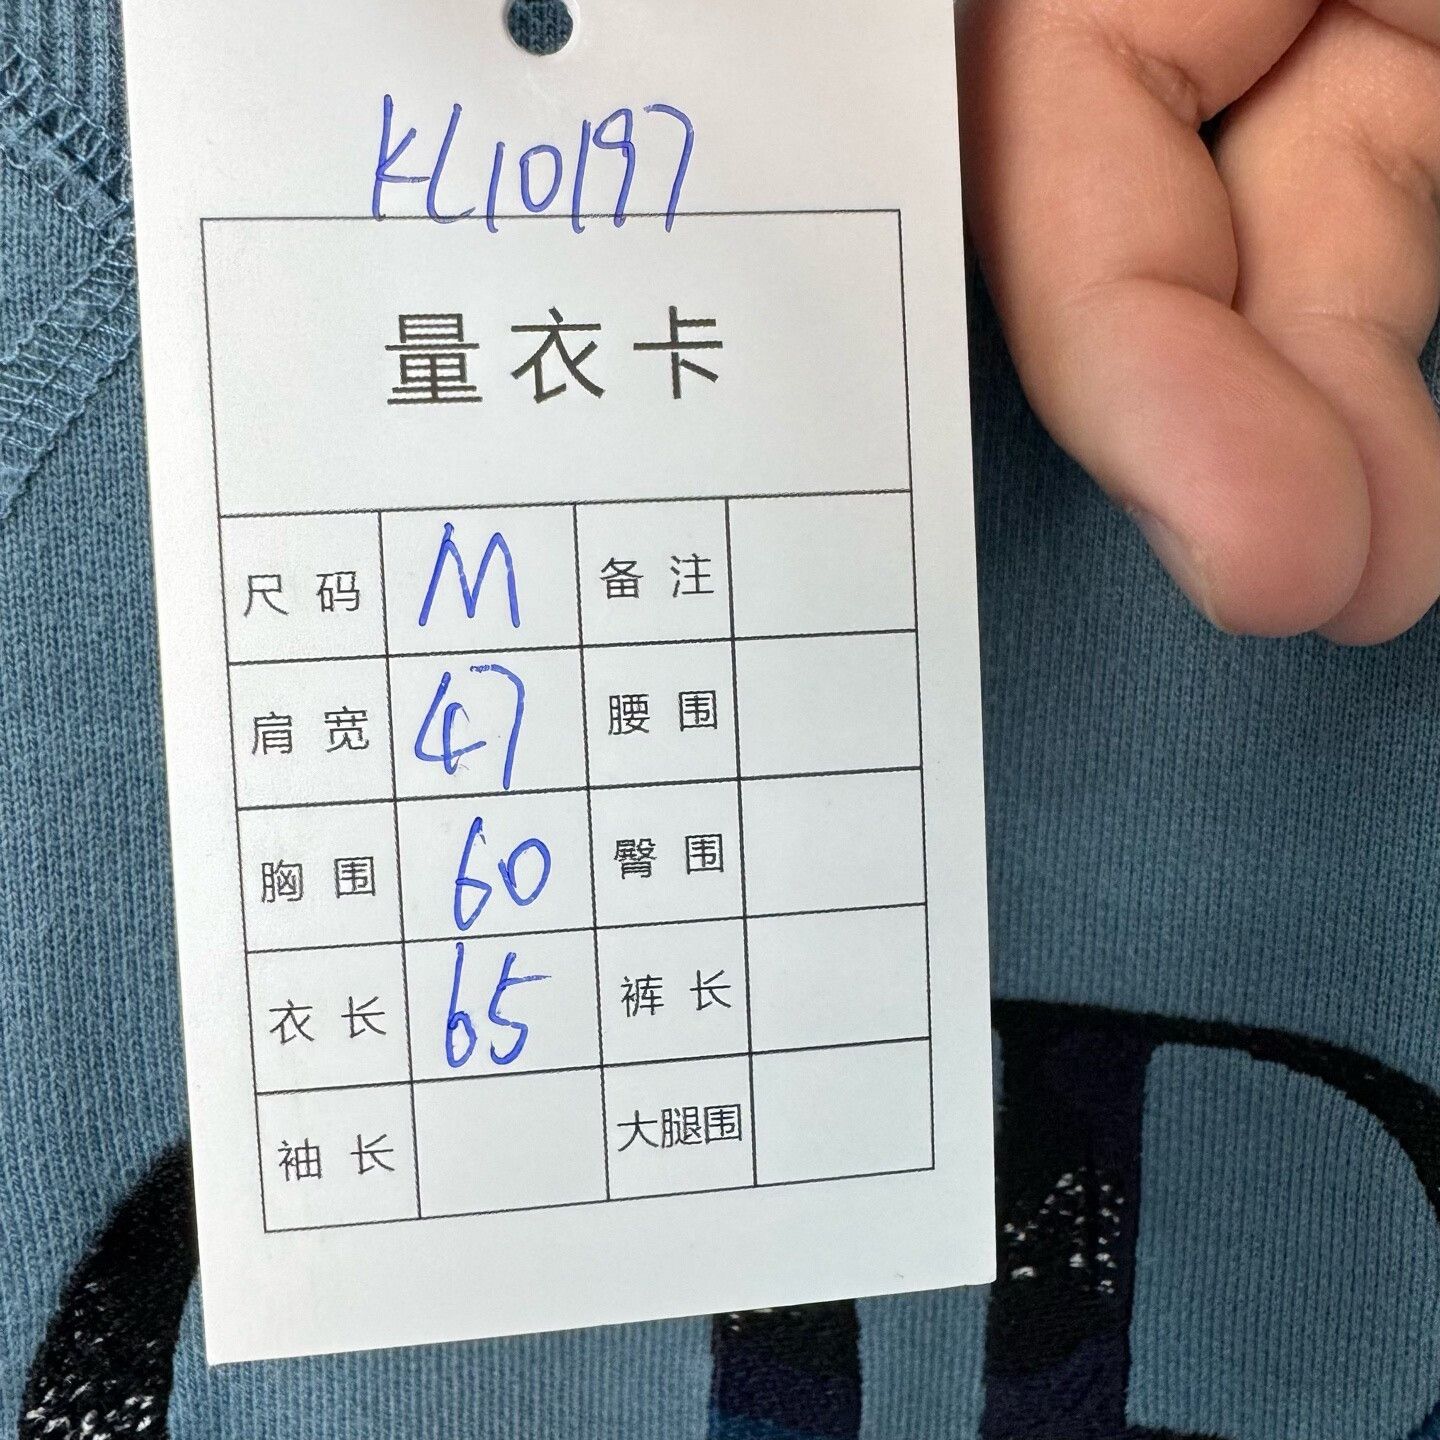 KL10197
量衣卡
尺码 M 备注
肩宽 47 腰围
胸围 60 臀围
衣长 65 裤长
袖长 大腿围